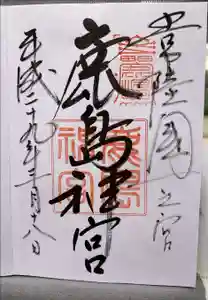 常陸国一之宮
鹿島神宮
平成二十九年二月十八日
鹿島神宮